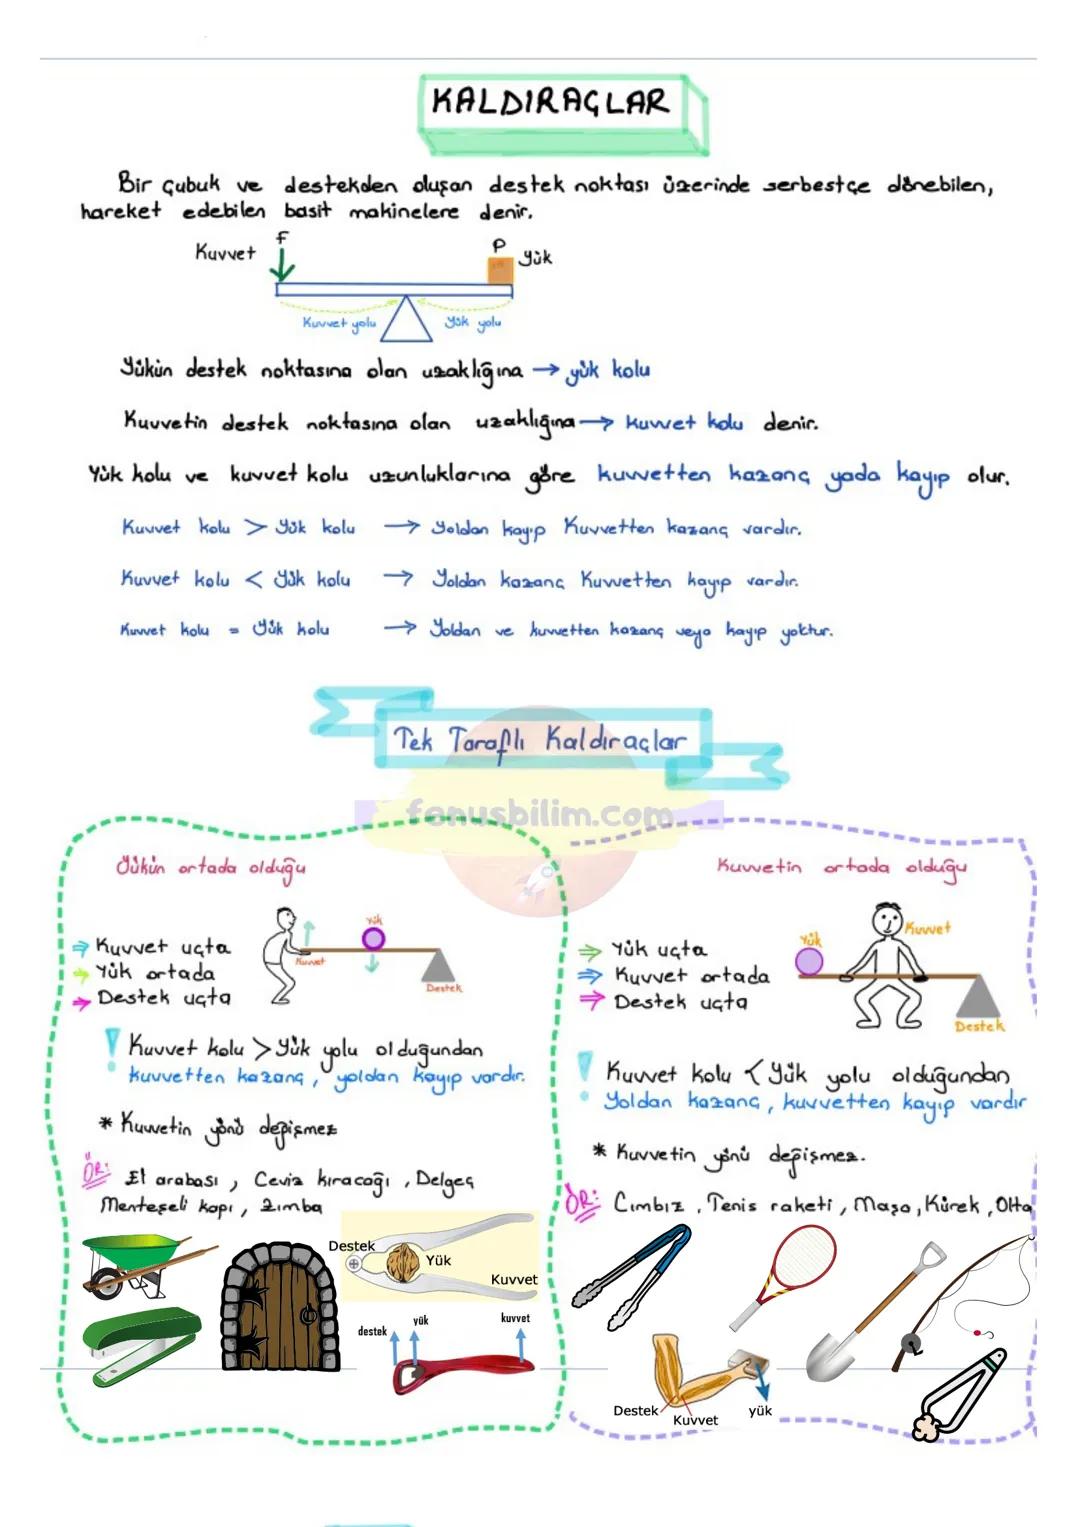 KALDIRAÇLAR
Bir çubuk ve destekden oluşan destek noktası üzerinde serbestçe dönebilen,
hareket edebilen basit makinelere denir.
Kuvvet F P Yük
Kuvvet yolu Yük yolu
Yükün destek noktasına olan uzaklığına → yük kolu
Kuvvetin destek noktasına olan uzaklığına → kuvvet kolu denir.
Yük kolu ve kuvvet kolu uzunluklarına göre kuvvetten kazanç yada kayıp olur.
Kuvvet kolu > Yük kolu → Yoldan kayıp Kuvvetten kazanç vardır.
Kuvvet kolu < Yük kolu → Yoldan kazanç Kuvvetten kayıp vardır.
Kuvvet kolu = Yük kolu → Yoldan ve kuvvetten kazanç veya kayıp yoktur.
Tek Taraflı Kaldıraçlar
fenusbilim.com
Yükün ortada olduğu
⇒ Kuvvet uçta
⇒ Yük ortada
⇒ Destek uçta
Kuvvet
Yük
Destek
! Kuvvet kolu > Yük yolu olduğundan
kuvvetten kazanç, yoldan kayıp vardır.
* Kuvvetin yönü değişmez
ÖR: El arabası, Ceviz kıracağı, Delgeç
Menteşeli kapı, Zımba
Destek
Yük
Kuvvet
destek
yük
kuvvet
Kuvvetin ortada olduğu
⇒ Yük uçta
⇒ Kuvvet ortada
⇒ Destek uçta
Yük
Kuvvet
Destek
! Kuvvet kolu < Yük yolu olduğundan
Yoldan kazanç, kuvvetten kayıp vardır
* Kuvvetin yönü değişmez.
ÖR: Cımbız, Tenis raketi, Maşa, Kürek, Olta
Destek
Kuvvet
yük